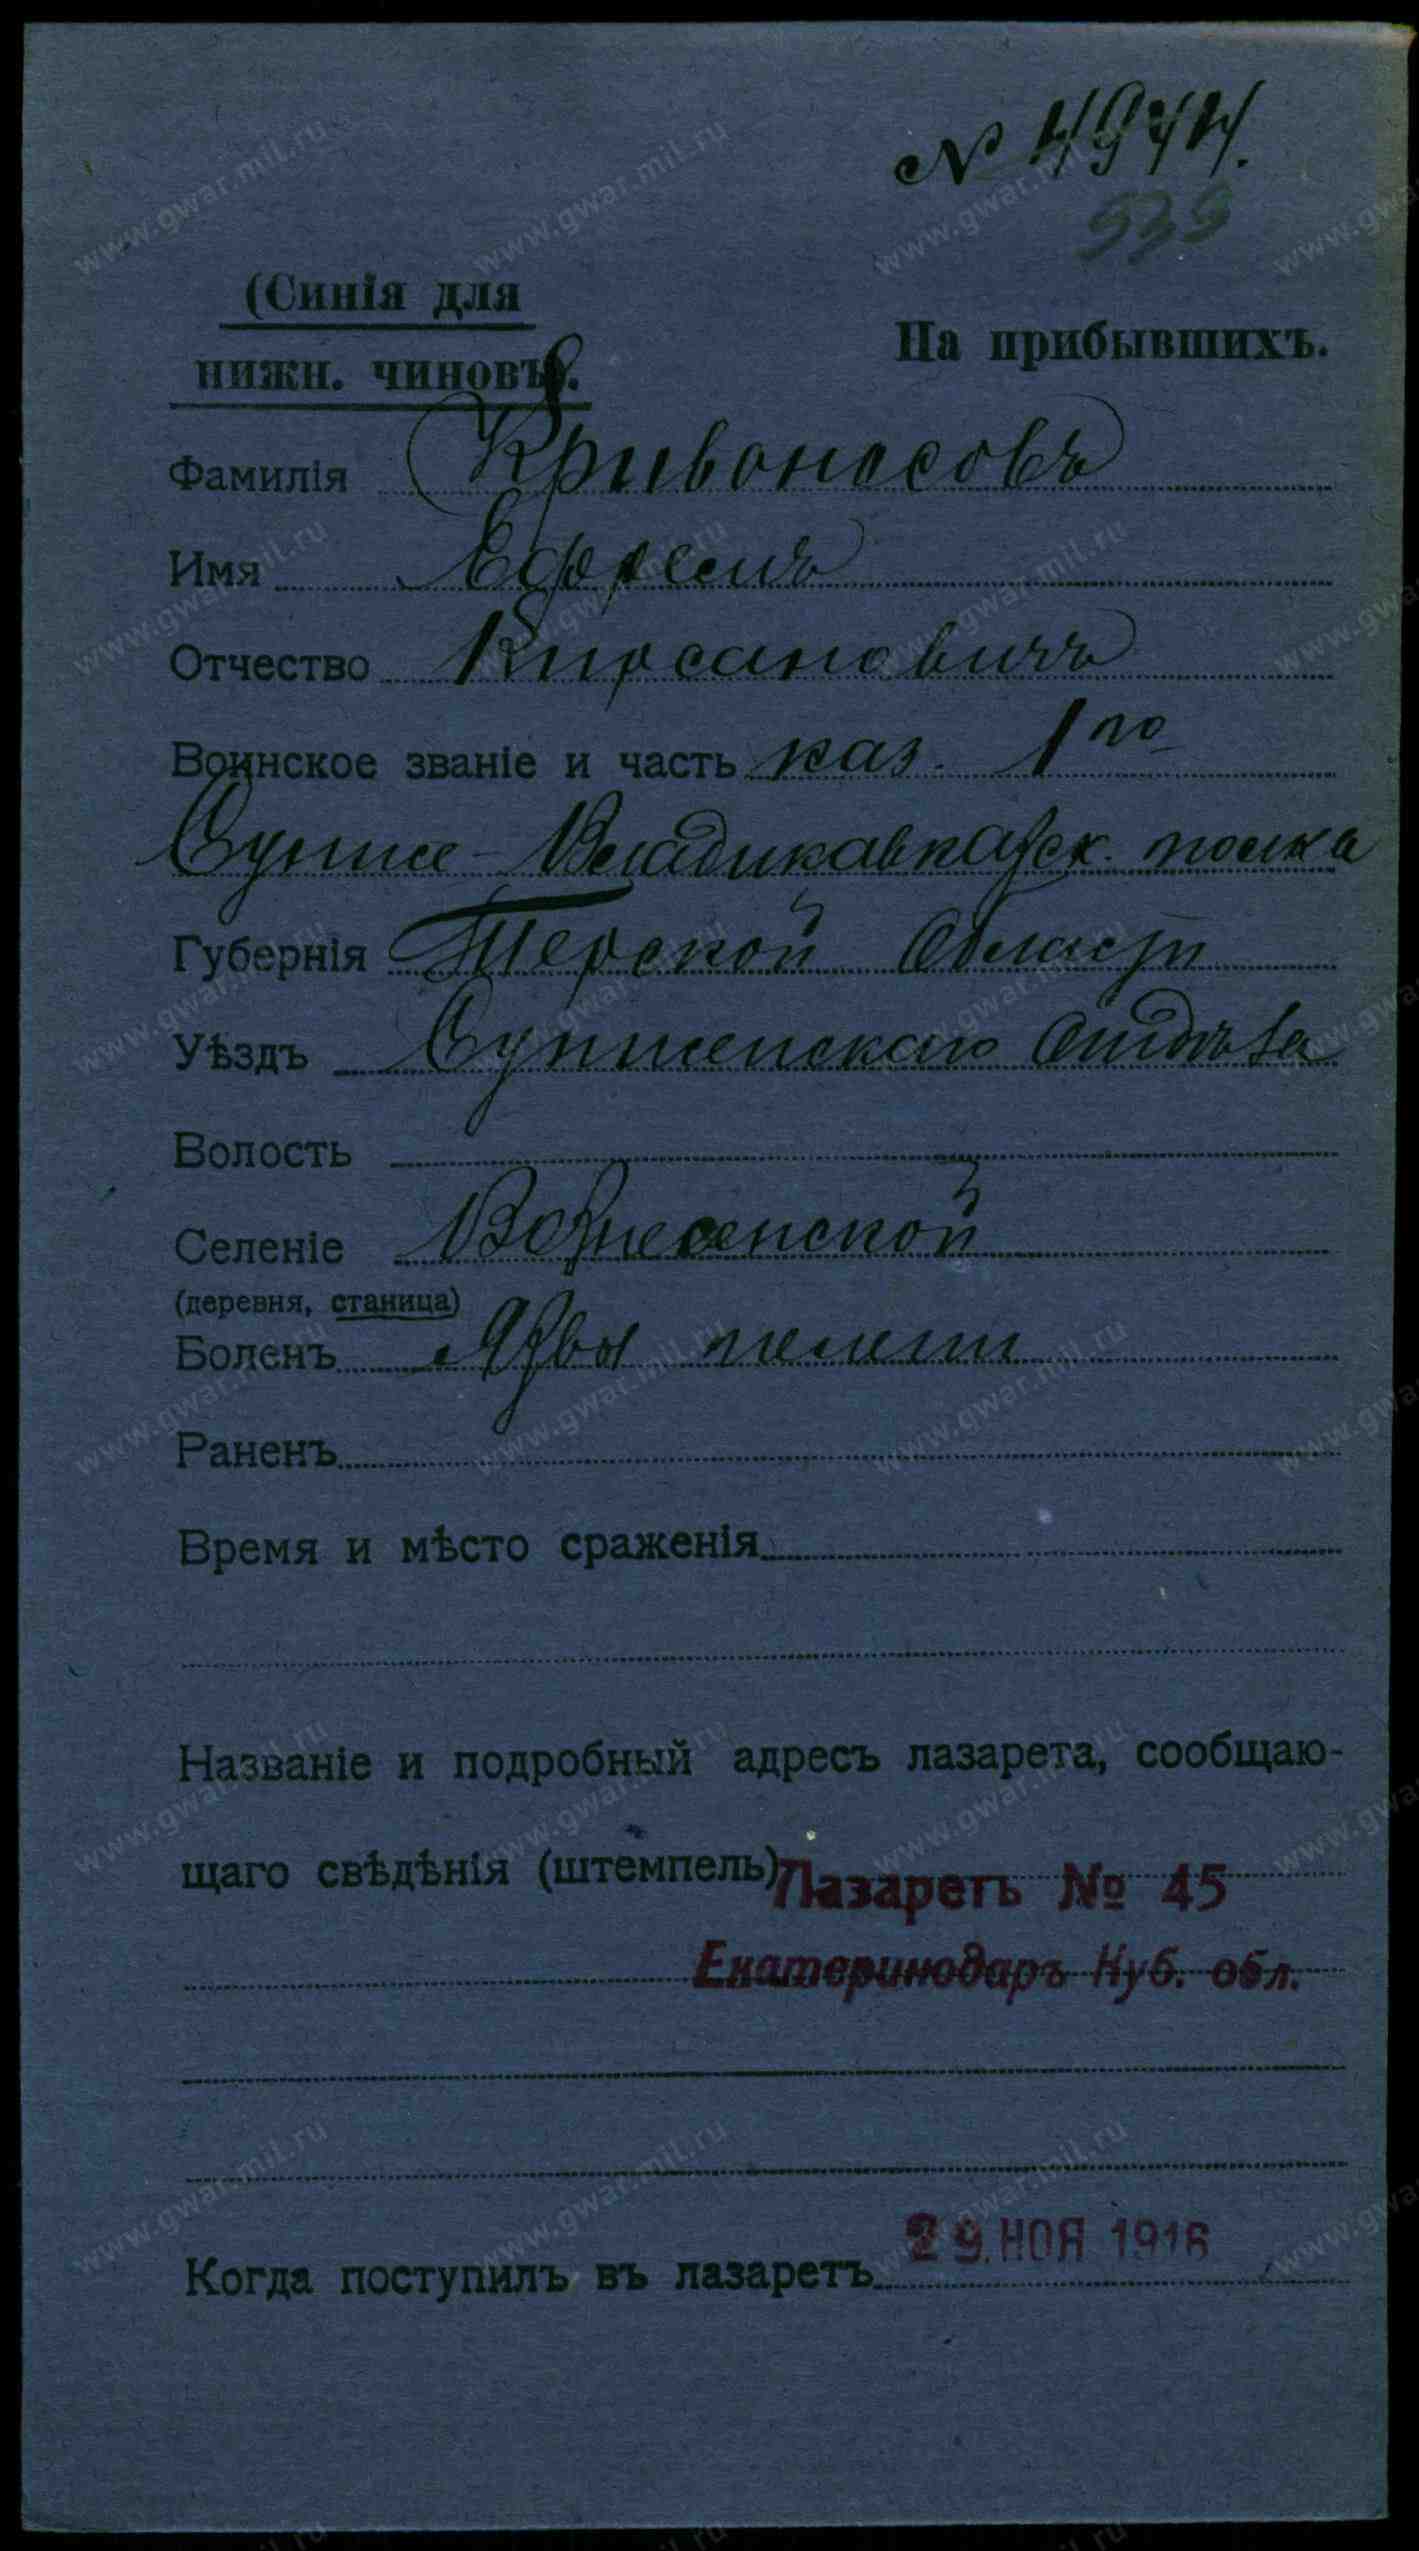 № 4974.
535
(Синія для
нижн. чиновъ).
На прибывшихъ.
Фамилія Кривоносовъ
Имя Ефремъ
Отчество Кирсановичъ
Воинское званіе и часть каз. 1го
Сунже-Владикавказск. полка
Губернія Терской Области
Уѣздъ Сунженскаго Отдѣла
Волость
Селеніе Вознесенской
(деревня, станица)
Боленъ Язвы голени
Раненъ
Время и мѣсто сраженія
Названіе и подробный адресъ лазарета, сообщаю-
щаго свѣдѣнія (штемпель) Лазаретъ № 45
Екатеринодаръ Куб. обл.
Когда поступилъ въ лазаретъ 29. НОЯ 1916
www.gwar.mil.ru